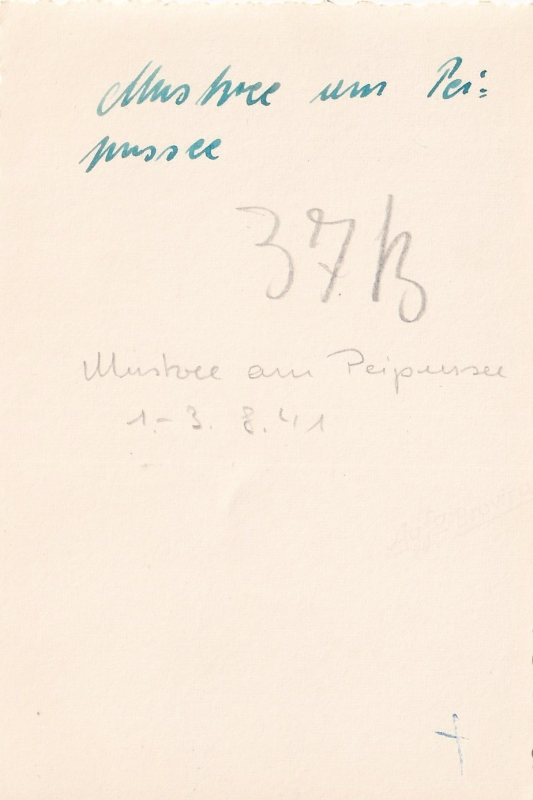 Mustvee am Pei=
pussee
37B
Mustvee am Peipussee
1.-3. 8.41